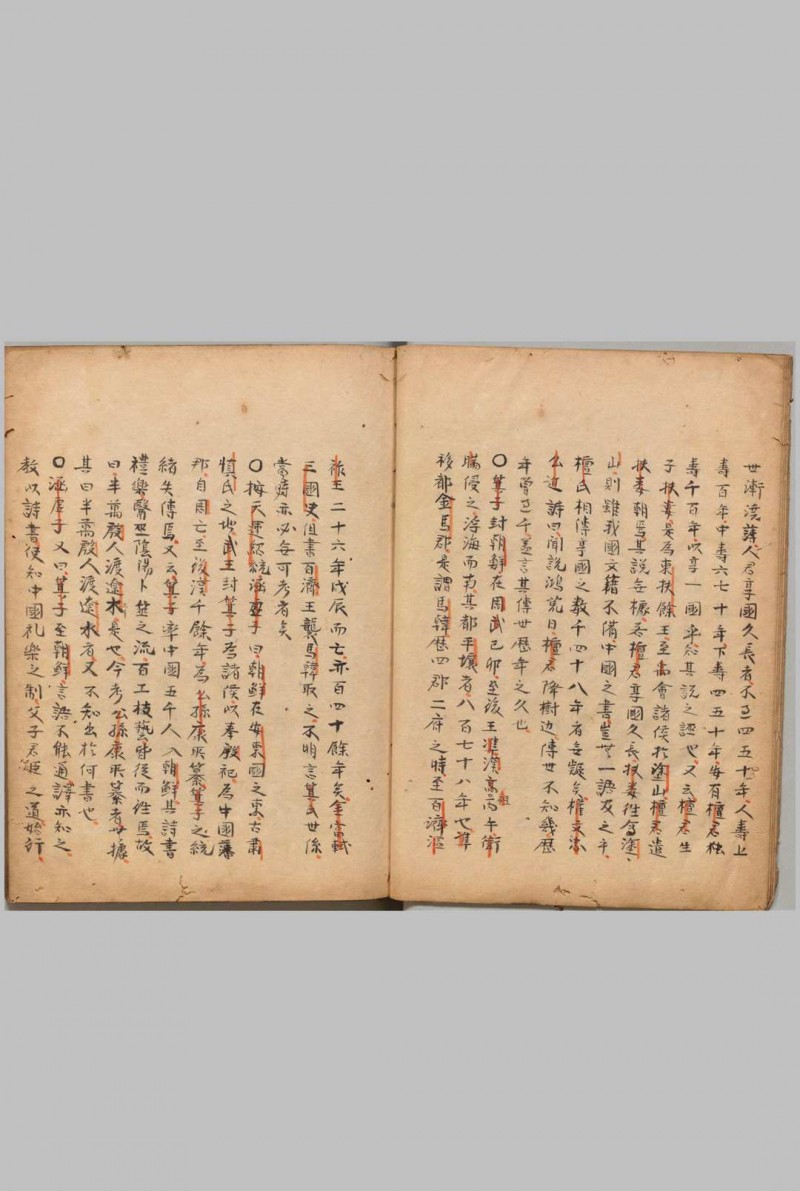 世漸澆薄人君享國久長者不過四五十年人壽上
壽百年中壽六七十年下壽四五十年安有檀君獨
壽千百年以享一國乎知其說之誣也又云檀君生
子扶婁是為東扶餘王至禹會諸侯於塗山檀君遣
扶婁朝焉其說無據若檀君享國久長扶婁往會塗
山則雖我國文籍不備中國之書豈無一語及之乎
檀氏相傳享國之數千四十八年者無疑矣權文忠
公近詩曰聞說鴻荒日檀君降樹邊傳世不知幾歷
年曾過千盖言其傳世歷年之久也
○箕子封朝鮮在周武己卯至後王準漢高祖丙午衛
瞞侵之浮海而南其都平壤者八百七十八年也準
移都金馬郡是謂馬韓歷四郡二府之時至百濟溫
祚王二十六年戊辰而亡亦百四十餘年矣金富軾
三國史但書百濟王襲馬韓取之不明言箕氏世係
當時亦必無可考者矣
○按天運紹統涵虛子曰朝鮮在安東國之東古肅
慎氏之地武王封箕子為諸侯以奉殷祀為中國藩
邦自周亡至後漢千餘年為公孫康所纂箕子之統
緒失傳焉又云箕子率中國五千人入朝鮮其詩書
禮樂醫巫陰陽卜筮之流百工技藝皆從而往焉故
曰半萬殷人渡遼水是也今考公孫康所纂者無據
其曰半萬殷人渡遼水者又不知出於何書也
○涵虛子又曰箕子至朝鮮言語不能通譯而知之
教以詩書使知中國礼樂之制父子君臣之道始行